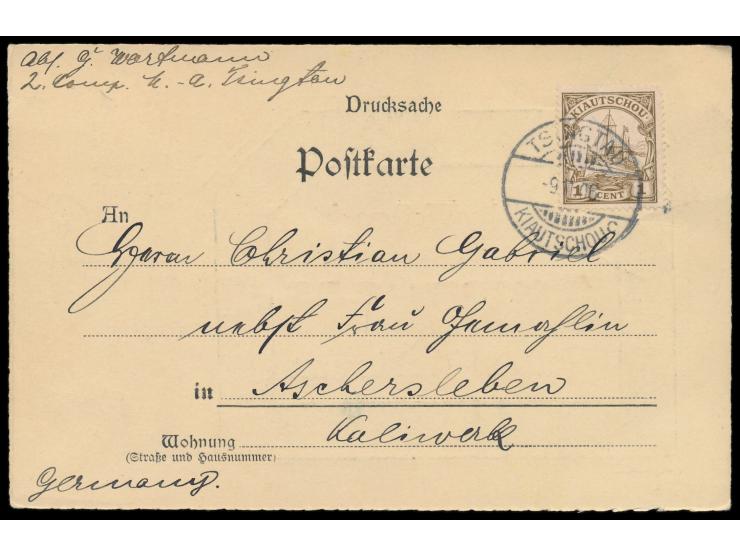 Abs. G. Wortmann
2. Comp. M.-A. Tsingtau
Drucksache
KIAUTSCHOU
1 CENT 1
TSINGTAU
KIAUTSCHOU
Postkarte
An
Herrn Christian Gabriel
nebst Frau Gemahlin
in Aschersleben
Kaliwerk
Wohnung
(Straße und Hausnummer)
Germany.